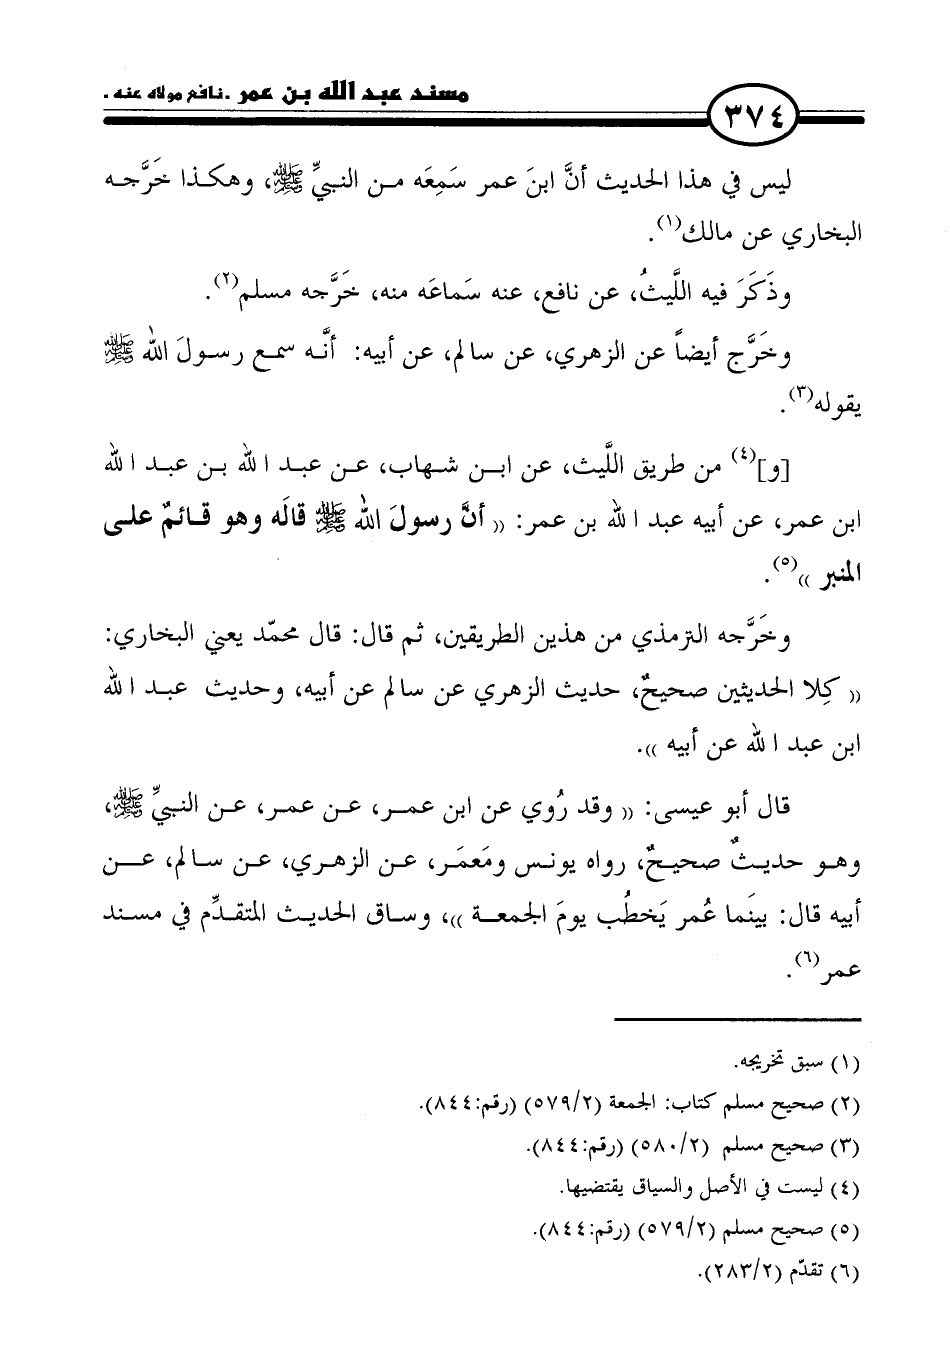 مسند عبد الله بن عمر .نافع مولاه عنه .
٣٧٤
ليس في هذا الحديث أنَّ ابنَ عمر سَمِعَه من النبيِّ ﷺ، وهكذا خَرَّجه
البخاري عن مالك(١).
وذَكَرَ فيه اللَّيثُ، عن نافع، عنه سَماعَه منه، خَرَّجه مسلم(٢).
وخَرَّج أيضاً عن الزهري، عن سالم، عن أبيه: أنَّه سمع رسولَ الله ﷺ
يقوله(٣).
[و](٤) من طريق اللَّيث، عن ابن شهاب، عن عبد الله بن عبد الله
ابن عمر، عن أبيه عبد الله بن عمر: (( أنَّ رسولَ الله ﷺ قالَه وهو قائمٌ على
المنبر ))(٥).
وخَرَّجه الترمذي من هذين الطريقين، ثم قال: قال محمّد يعني البخاري:
(( كِلا الحديثين صحيحٌ، حديث الزهري عن سالم عن أبيه، وحديث عبد الله
ابن عبد الله عن أبيه )).
قال أبو عيسى: (( وقد رُوي عن ابن عمر، عن عمر، عن النبيِّ ﷺ،
وهو حديثٌ صحيحٌ، رواه يونس ومَعمَر، عن الزهري، عن سالم، عن
أبيه قال: بينَما عُمر يَخطُب يومَ الجمعة ))، وساق الحديث المتقدِّم في مسند
عمر(٦).
(١) سبق تخريجه.
(٢) صحيح مسلم كتاب: الجمعة (٥٧٩/٢) (رقم:٨٤٤).
(٣) صحيح مسلم (٥٨٠/٢) (رقم:٨٤٤).
(٤) ليست في الأصل والسياق يقتضيها.
(٥) صحيح مسلم (٥٧٩/٢) (رقم:٨٤٤).
(٦) تقدّم (٢٨٣/٢).